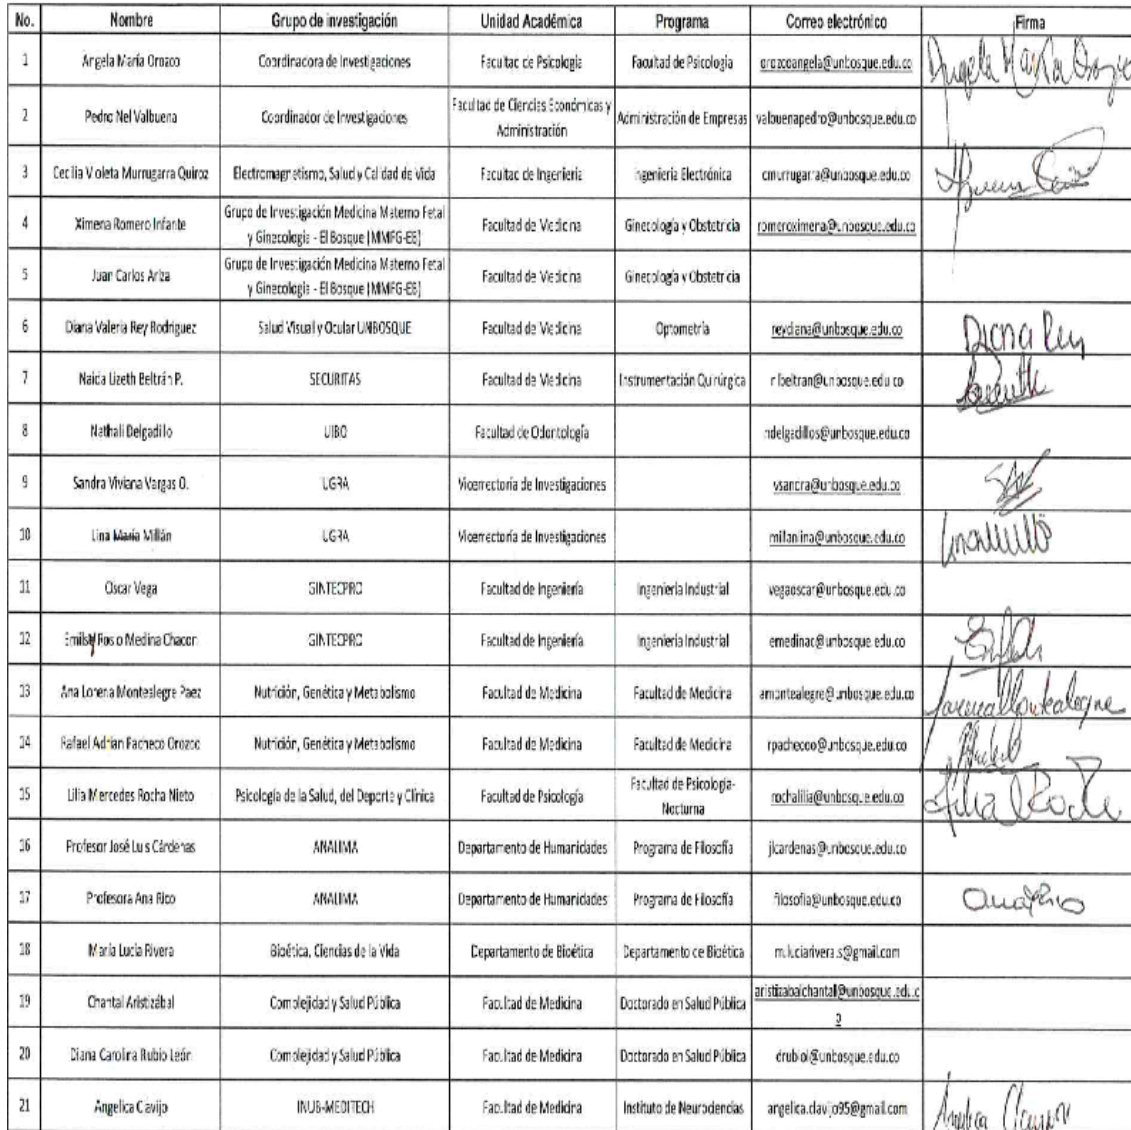 No. Nombre Grupo de investigación Unidad Académica Programa Correo electrónico Firma
1 Angela María Orozco Coordinadora de Investigaciones Facultad de Psicología Facultad de Psicología orozcoangela@unbosque.edu.co Angela María Orozco
2 Pedro Nel Valbuena Coordinador de Investigaciones Facultad de Ciencias Económicas y Administración Administración de Empresas valbuenapedro@unbosque.edu.co
3 Cecilia Violeta Murrugarra Quiroz Electromagnetismo, Salud y Calidad de Vida Facultad de Ingeniería Ingeniería Electrónica cmurrugarra@unbosque.edu.co
4 Ximena Romero Infante Grupo de Investigación Medicina Materno Fetal y Ginecología - El Bosque (MMFG-EB) Facultad de Medicina Ginecología y Obstetricia romeroximena@unbosque.edu.co
5 Juan Carlos Ariza Grupo de Investigación Medicina Materno Fetal y Ginecología - El Bosque (MMFG-EB) Facultad de Medicina Ginecología y Obstetricia
6 Diana Valeria Rey Rodríguez Salud Visual y Ocular UNBOSQUE Facultad de Medicina Optometría reydiana@unbosque.edu.co Diana Rey
7 Naida Lizeth Beltrán P. SECURITAS Facultad de Medicina Instrumentación Quirúrgica nlbeltran@unbosque.edu.co
8 Nathali Delgadillo UIBO Facultad de Odontología ndelgadillos@unbosque.edu.co
9 Sandra Viviana Vargas O. UGRA Vicerrectoría de Investigaciones vsandra@unbosque.edu.co
10 Lina María Millán UGRA Vicerrectoría de Investigaciones millanlina@unbosque.edu.co
11 Oscar Vega GINTECPRO Facultad de Ingeniería Ingeniería Industrial vegaoscar@unbosque.edu.co
12 Emilsy Rosio Medina Chacon GINTECPRO Facultad de Ingeniería Ingeniería Industrial emedinac@unbosque.edu.co
13 Ana Lorena Montealegre Paez Nutrición, Genética y Metabolismo Facultad de Medicina Facultad de Medicina amontealegre@unbosque.edu.co
14 Rafael Adrian Pacheco Orozco Nutrición, Genética y Metabolismo Facultad de Medicina Facultad de Medicina rpachecoo@unbosque.edu.co
15 Lilia Mercedes Rocha Nieto Psicología de la Salud, del Deporte y Clínica Facultad de Psicología Facultad de Psicología- Nocturna rochalilia@unbosque.edu.co
16 Profesor José Luis Cárdenas ANALIMA Departamento de Humanidades Programa de Filosofía jlcardenas@unbosque.edu.co
17 Profesora Ana Rico ANALIMA Departamento de Humanidades Programa de Filosofía filosofia@unbosque.edu.co
18 María Lucía Rivera Bioética, Ciencias de la Vida Departamento de Bioética Departamento de Bioética m.luciarivera.s@gmail.com
19 Chantal Aristizábal Complejidad y Salud Pública Facultad de Medicina Doctorado en Salud Pública aristizabalchantal@unbosque.edu.co
20 Diana Carolina Rubio León Complejidad y Salud Pública Facultad de Medicina Doctorado en Salud Pública drubiol@unbosque.edu.co
21 Angelica Clavijo INUB-MEDITECH Facultad de Medicina Instituto de Neurociencias angelica.clavijo95@gmail.com